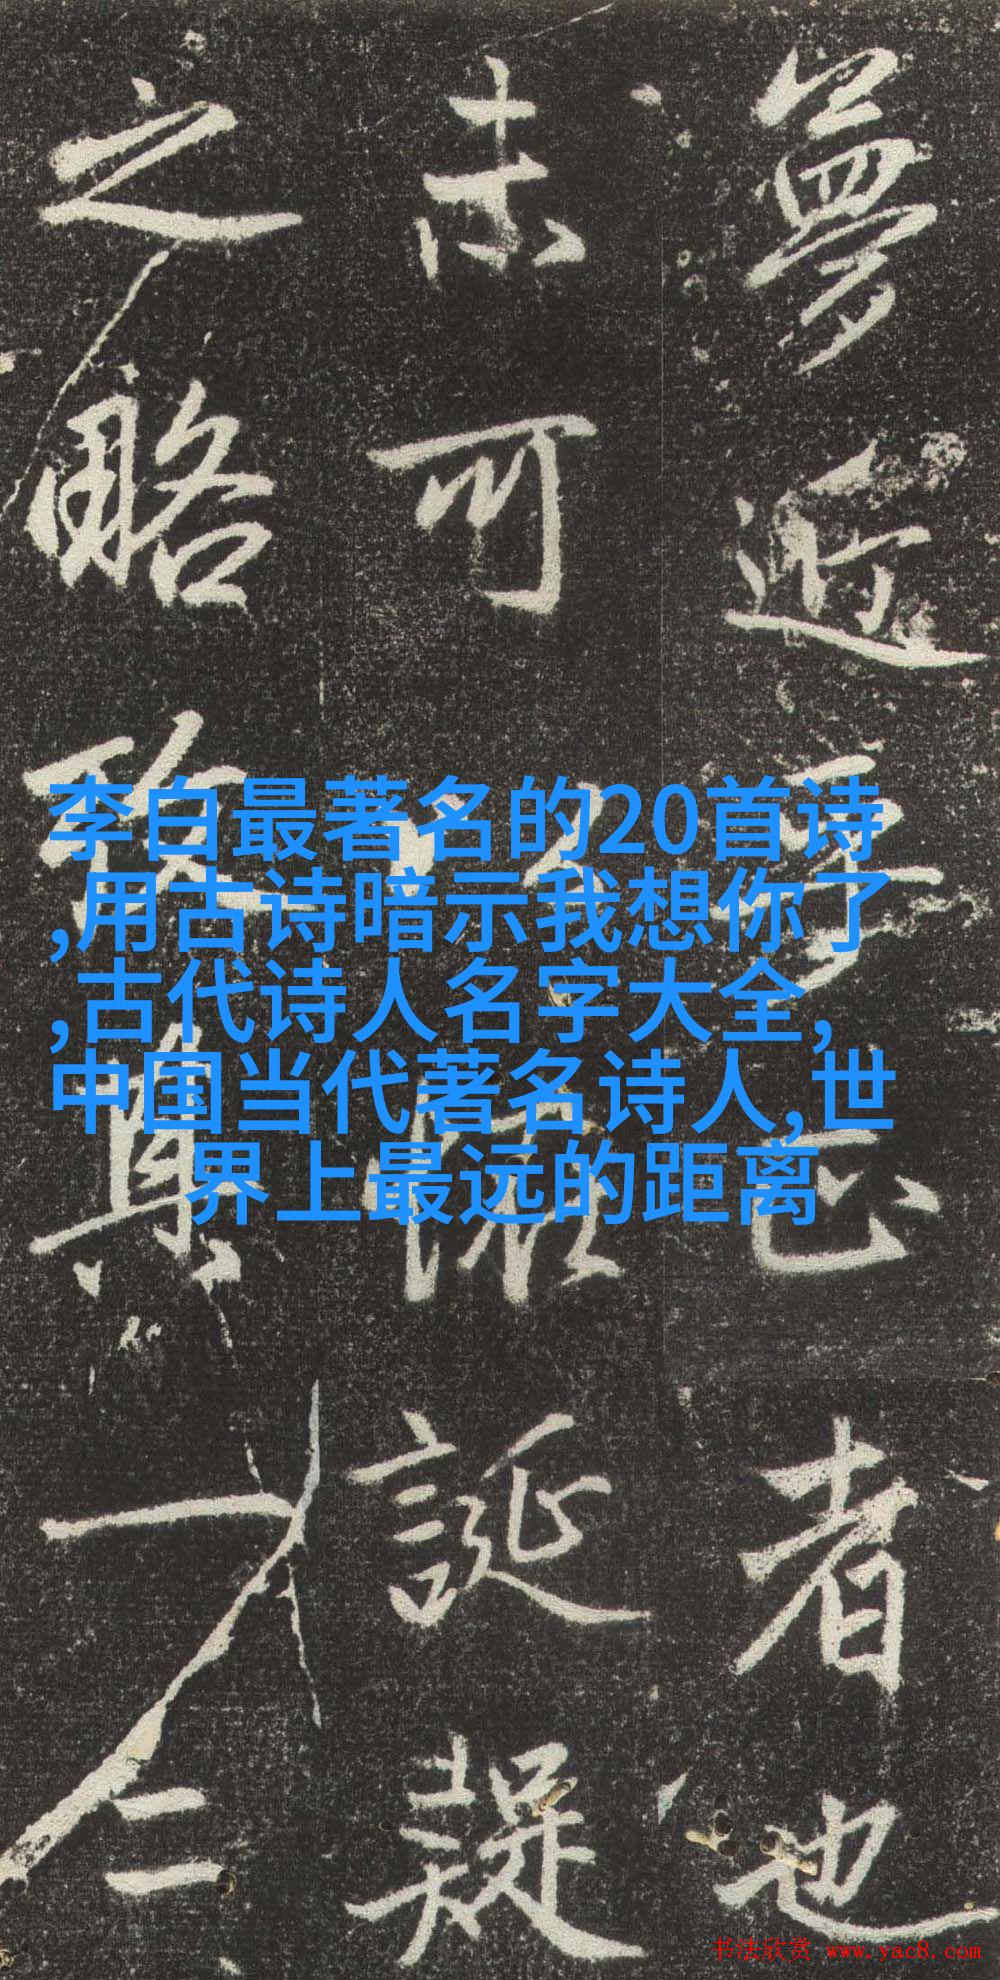 李白最著名的20首诗
,用古诗暗示我想你了
,古代诗人名字大全,
中国当代著名诗人,世
界上最远的距离
夢近乎正者也
未可以怪誕疑
之略其一二
书法欣赏 www.yac8.com